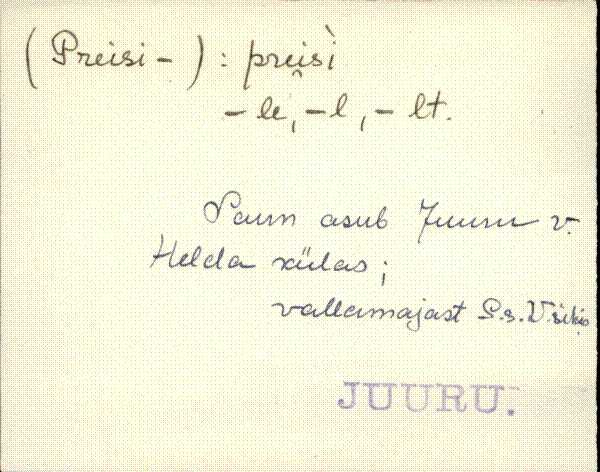 (Preisi-) : preisì
-le, -l, -lt.
Saun asub Juuru v.
Helda külas;
vallamajast
JUURU.